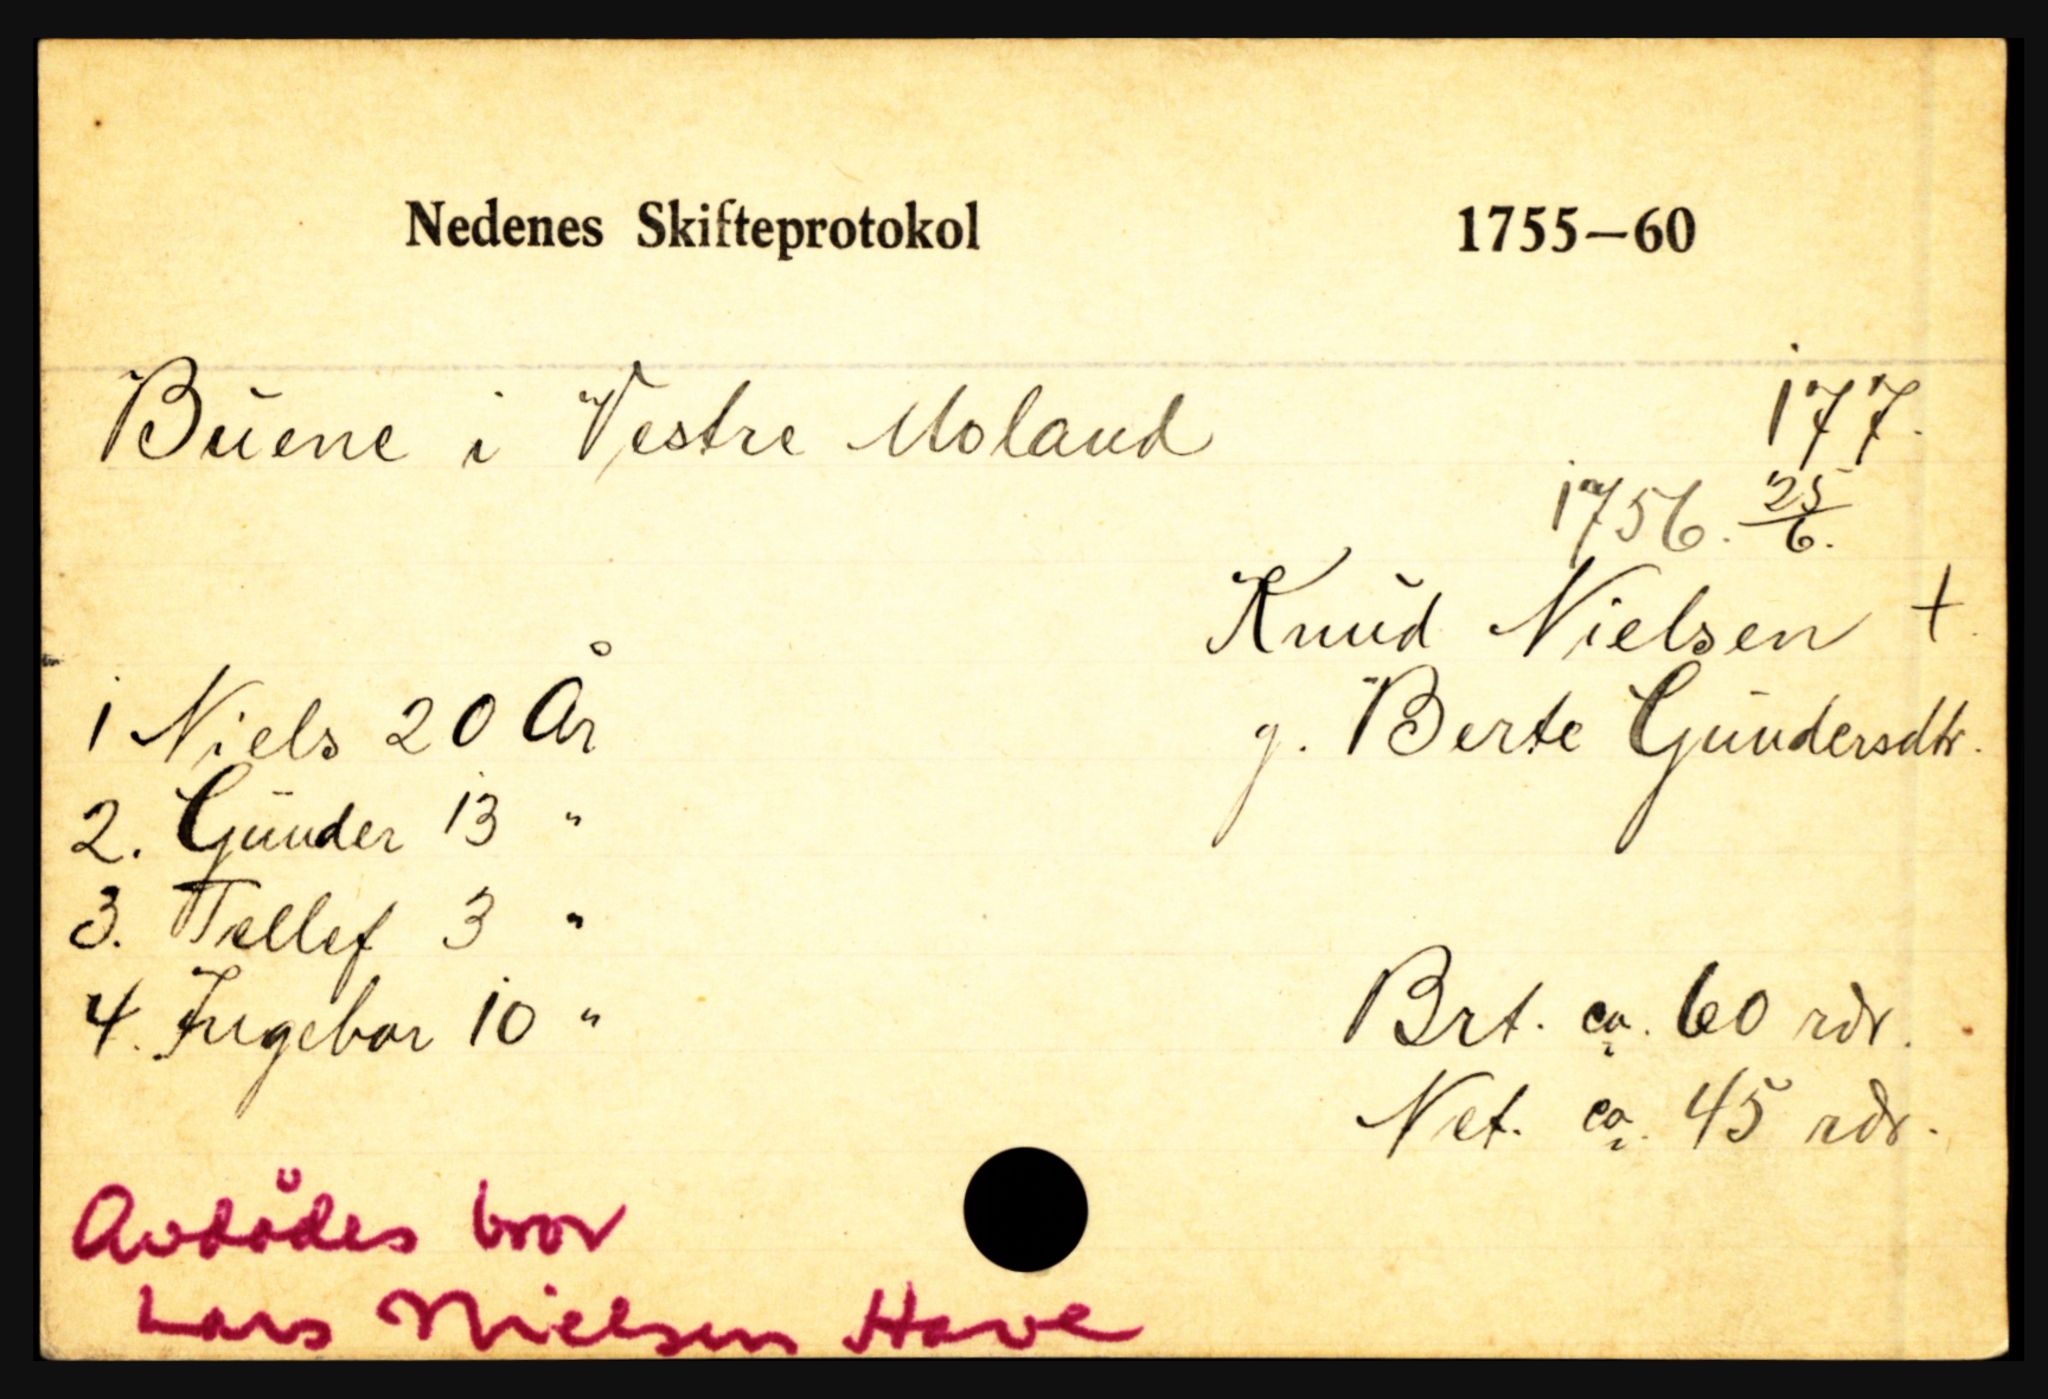 Nedenes Skifteprotokol 1755—60
Buene i Vestre Moland 177.
1756. 25/6.
Knud Nielsen +
1 Niels 20 År g. Berte Gundersdtr.
2. Gunder 13 "
3. Tellef 3 "
4. Ingebor 10 " Brt. ca. 60 rdr.
Net. ca. 45 rdr.
Avdödes bror
Lars Nielsen Have